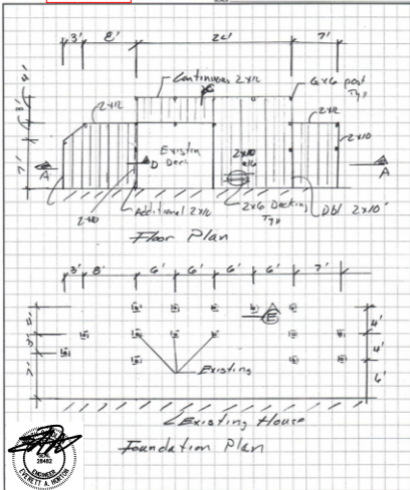 3' 8' 24' 7'
Continuous 2x12
6x6 post
Typ
2x12
2x12
2x10
4'
3'
7'
Existin
Deck
D
2x10
A
A
2x10
Additional 2x10
2x6 Decking
Typ
Dbl 2x10'
Floor Plan
3' 8' 6' 6' 6' 6' 7'
E
4'
4'
6'
3'
7'
Existing
Existing House
Foundation Plan
SEAL
28462
ENGINEER
EVERETT A. NORTON